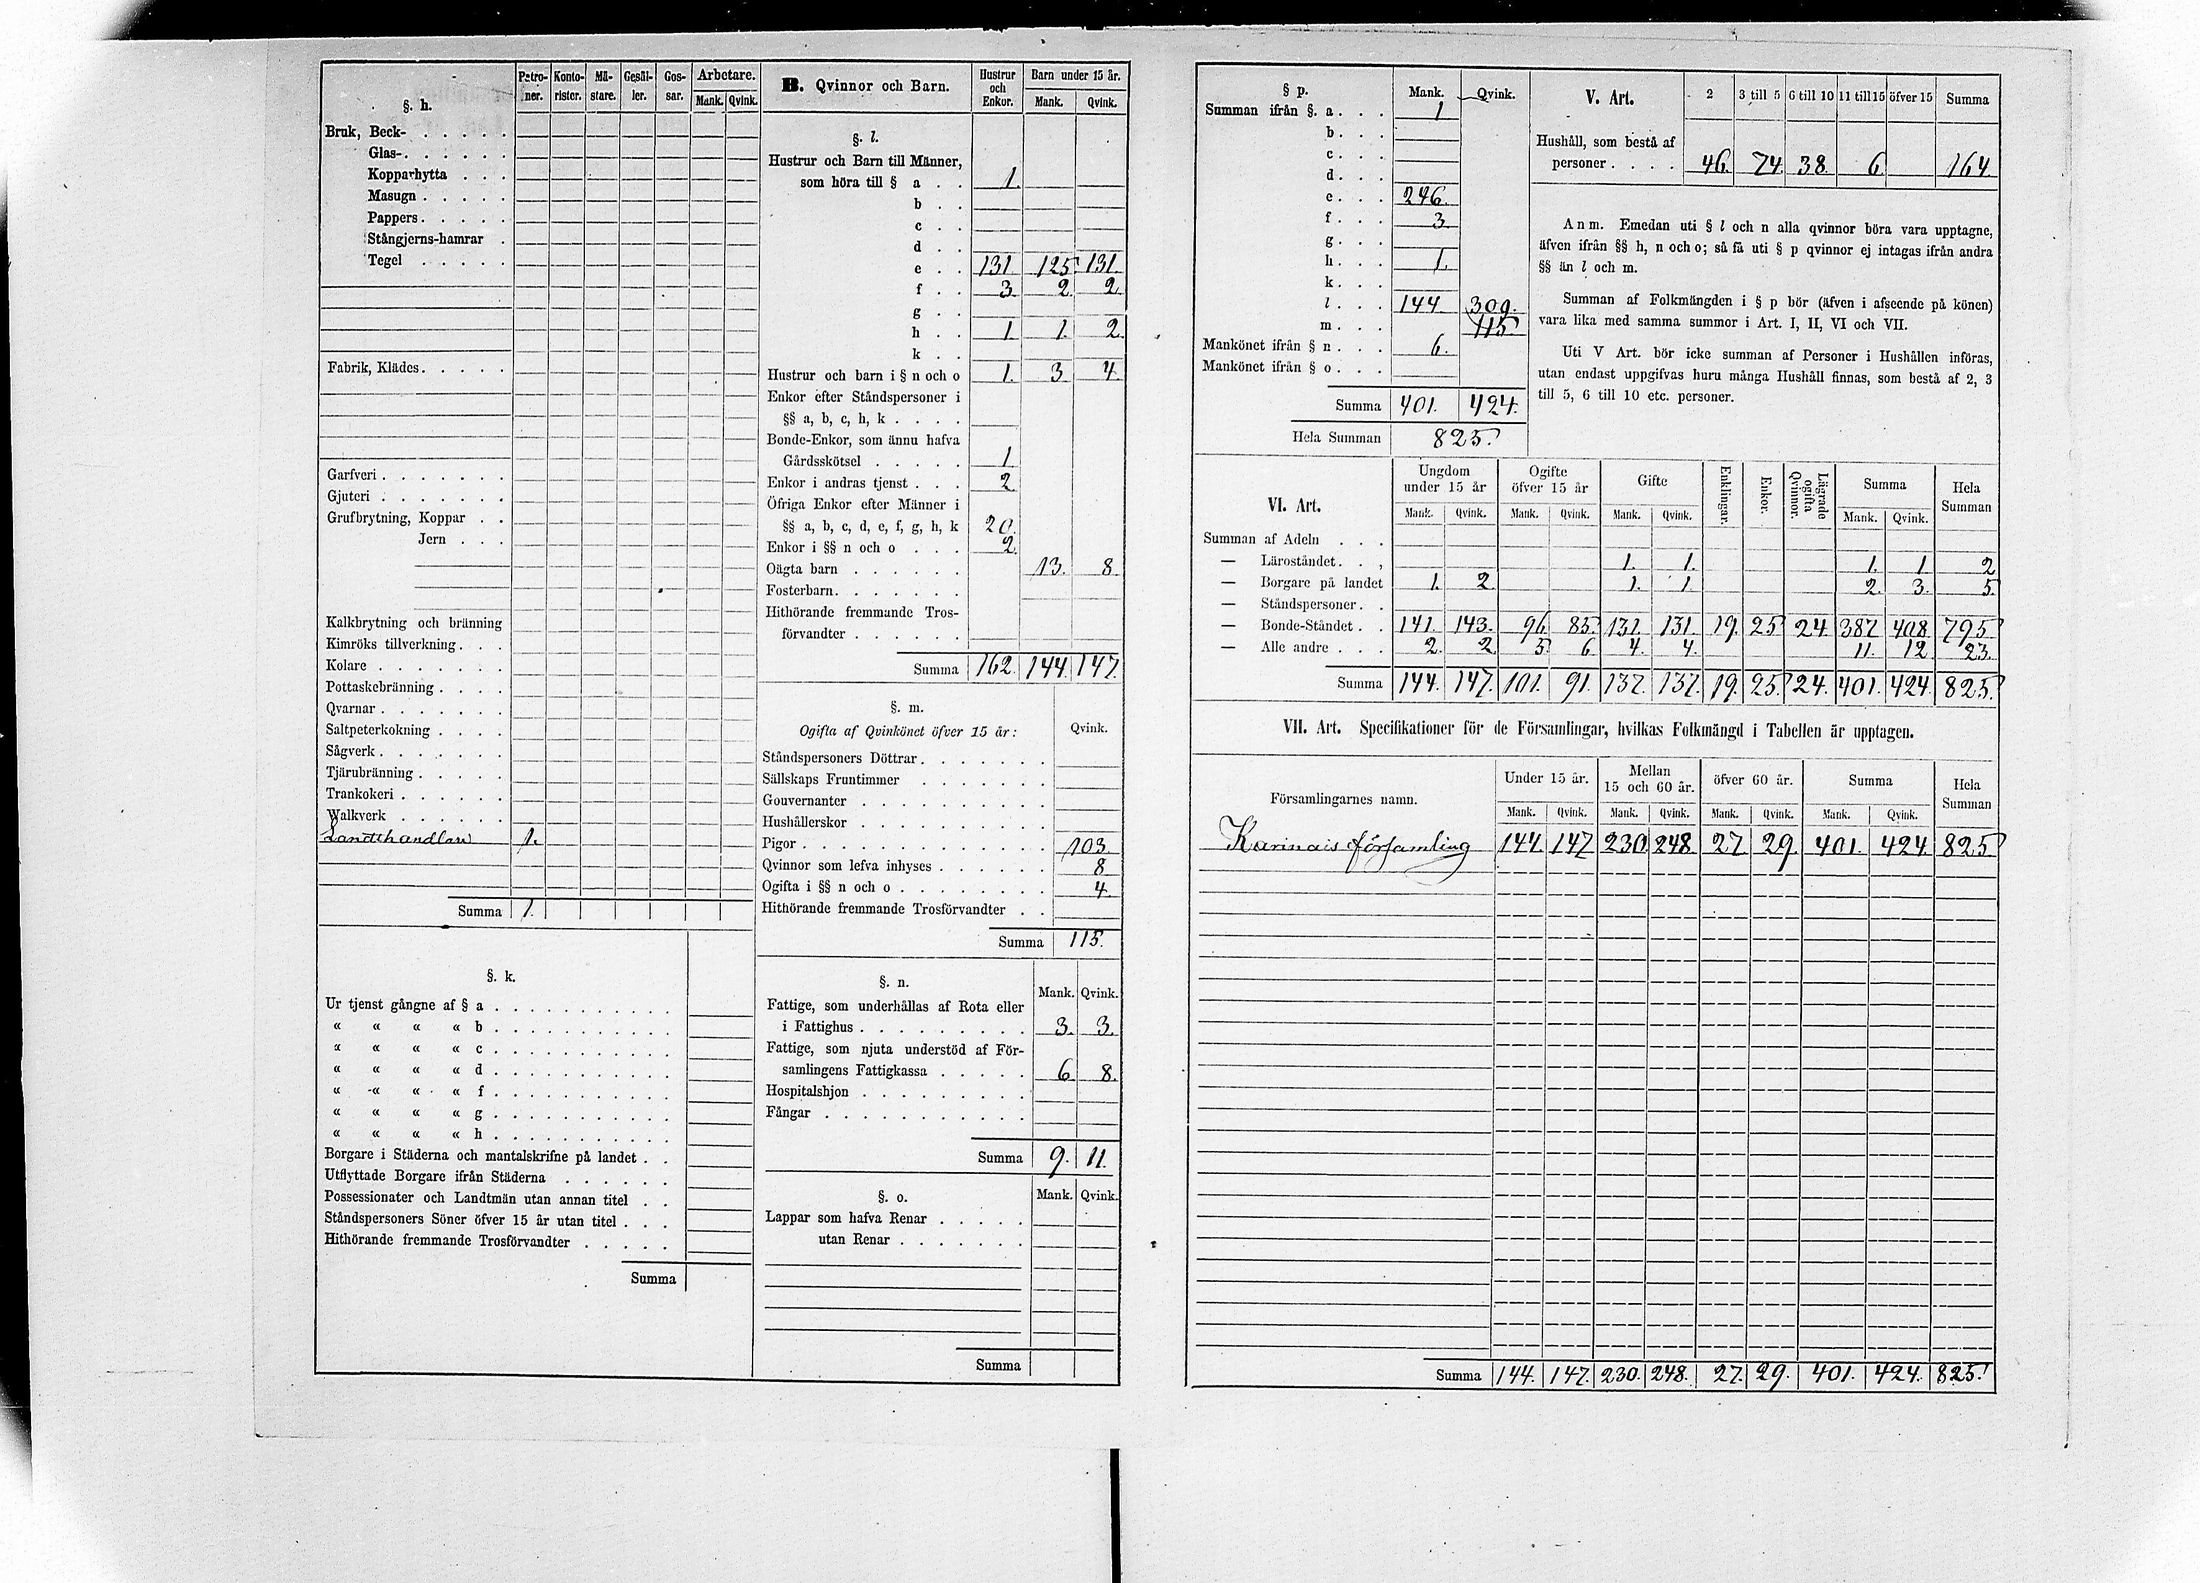 §. h. Patro-ner. Konto-rister. Mä-stare. Gesäl-ler. Gos-sar. Arbetare. Mank. Qvink.
Bruk, Beck-
Glas-
Kopparhytta
Masugn
Pappers
Stångjerns-hamrar
Tegel
Fabrik, Klädes
Garfveri
Gjuteri
Grufbrytning, Koppar
Jern
Kalkbrytning och bränning
Kimröks tillverkning
Kolare
Pottaskebränning
Qvarnar
Saltpeterkokning
Sågverk
Tjärubränning
Trankokeri
Walkverk
Landthandlare 1.
Summa 1.
§. k.
Ur tjenst gångne af § a
« « « « b
« « « « c
« « « « d
« « « « f
« « « « g
« « « « h
Borgare i Städerna och mantalskrifne på landet
Utflyttade Borgare ifrån Städerna
Possessionater och Landtmän utan annan titel
Ståndspersoners Söner öfver 15 år utan titel
Hithörande fremmande Trosförvandter
Summa
B. Qvinnor och Barn. Hustrur och Enkor. Barn under 15 år. Mank. Qvink.
§. l.
Hustrur och Barn till Männer,
som höra till § a 1.
b
c
d
e 131 125 131.
f 3. 2. 2.
g
h 1. 1. 2.
k
Hustrur och barn i § n och o 1. 3 4
Enkor efter Ståndspersoner i
§§ a, b, c, h, k
Bonde-Enkor, som ännu hafva
Gårdsskötsel 1
Enkor i andras tjenst 2
Öfriga Enkor efter Männer i
§§ a, b, c, d, e, f, g, h, k 20.
Enkor i §§ n och o 2.
Oägta barn 13. 8.
Fosterbarn
Hithörande fremmande Tros-
förvandter
Summa 162. 144. 147.
§. m.
Ogifta af Qvinkönet öfver 15 år: Qvink.
Ståndspersoners Döttrar
Sällskaps Fruntimmer
Gouvernanter
Hushållerskor
Pigor 103.
Qvinnor som lefva inhyses 8.
Ogifta i §§ n och o 4.
Hithörande fremmande Trosförvandter
Summa 115.
§. n. Mank. Qvink.
Fattige, som underhållas af Rota eller
i Fattighus 3. 3.
Fattige, som njuta understöd af För-
samlingens Fattigkassa 6. 8.
Hospitalshjon
Fångar
Summa 9. 11.
§. o. Mank. Qvink.
Lappar som hafva Renar
utan Renar
Summa
§ p. Mank. Qvink.
Summan ifrån §. a 1
b.
c.
d.
e. 246.
f. 3
g.
h. 1.
k.
l. 144 309.
m. 115
Mankönet ifrån § n 6.
Mankönet ifrån § o
Summa 401. 424.
Hela Summan 825.
V. Art. 2 3 till 5 6 till 10 11 till 15 öfver 15 Summa
Hushåll, som bestå af
personer 46. 74. 38. 6 164.
Anm. Emedan uti § l och n alla qvinnor böra vara upptagne,
äfven ifrån §§ h, n och o; så få uti § p qvinnor ej intagas ifrån andra
§§ än l och m.
Summan af Folkmängden i § p bör (äfven i afseende på könen)
vara lika med samma summor i Art. I, II, VI och VII.
Uti V Art. bör icke summan af Personer i Hushållen införas,
utan endast uppgifvas huru många Hushåll finnas, som bestå af 2, 3
till 5, 6 till 10 etc. personer.
VI. Art. Ungdom under 15 år Ogifte öfver 15 år Gifte Enklingar. Enkor. Lägrade ogifta Qvinnor. Summa Hela Summan
Mank. Qvink. Mank. Qvink. Mank. Qvink. Mank. Qvink.
Summan af Adeln
— Läroståndet 1. 1. 1. 1 2
— Borgare på landet 1. 2 1. 1. 2. 3. 5.
— Ståndspersoner
— Bonde-Ståndet 141. 143. 96. 85. 131. 131. 19. 25 24. 387 408 795
— Alle andre 2. 2 5 6 4. 4. 11. 12 23.
Summa 144. 147. 101. 91. 137. 137. 19. 25. 24. 401. 424. 825.
VII. Art. Specifikationer för de Församlingar, hvilkas Folkmängd i Tabellen är upptagen.
Församlingarnes namn. Under 15 år. Mellan 15 och 60 år. öfver 60 år. Summa Hela Summan
Mank. Qvink. Mank. Qvink. Mank. Qvink. Mank. Qvink.
Karinais församling 144. 147 230 248 27. 29. 401. 424 825
Summa 144. 147. 230. 248. 27. 29. 401. 424. 825.